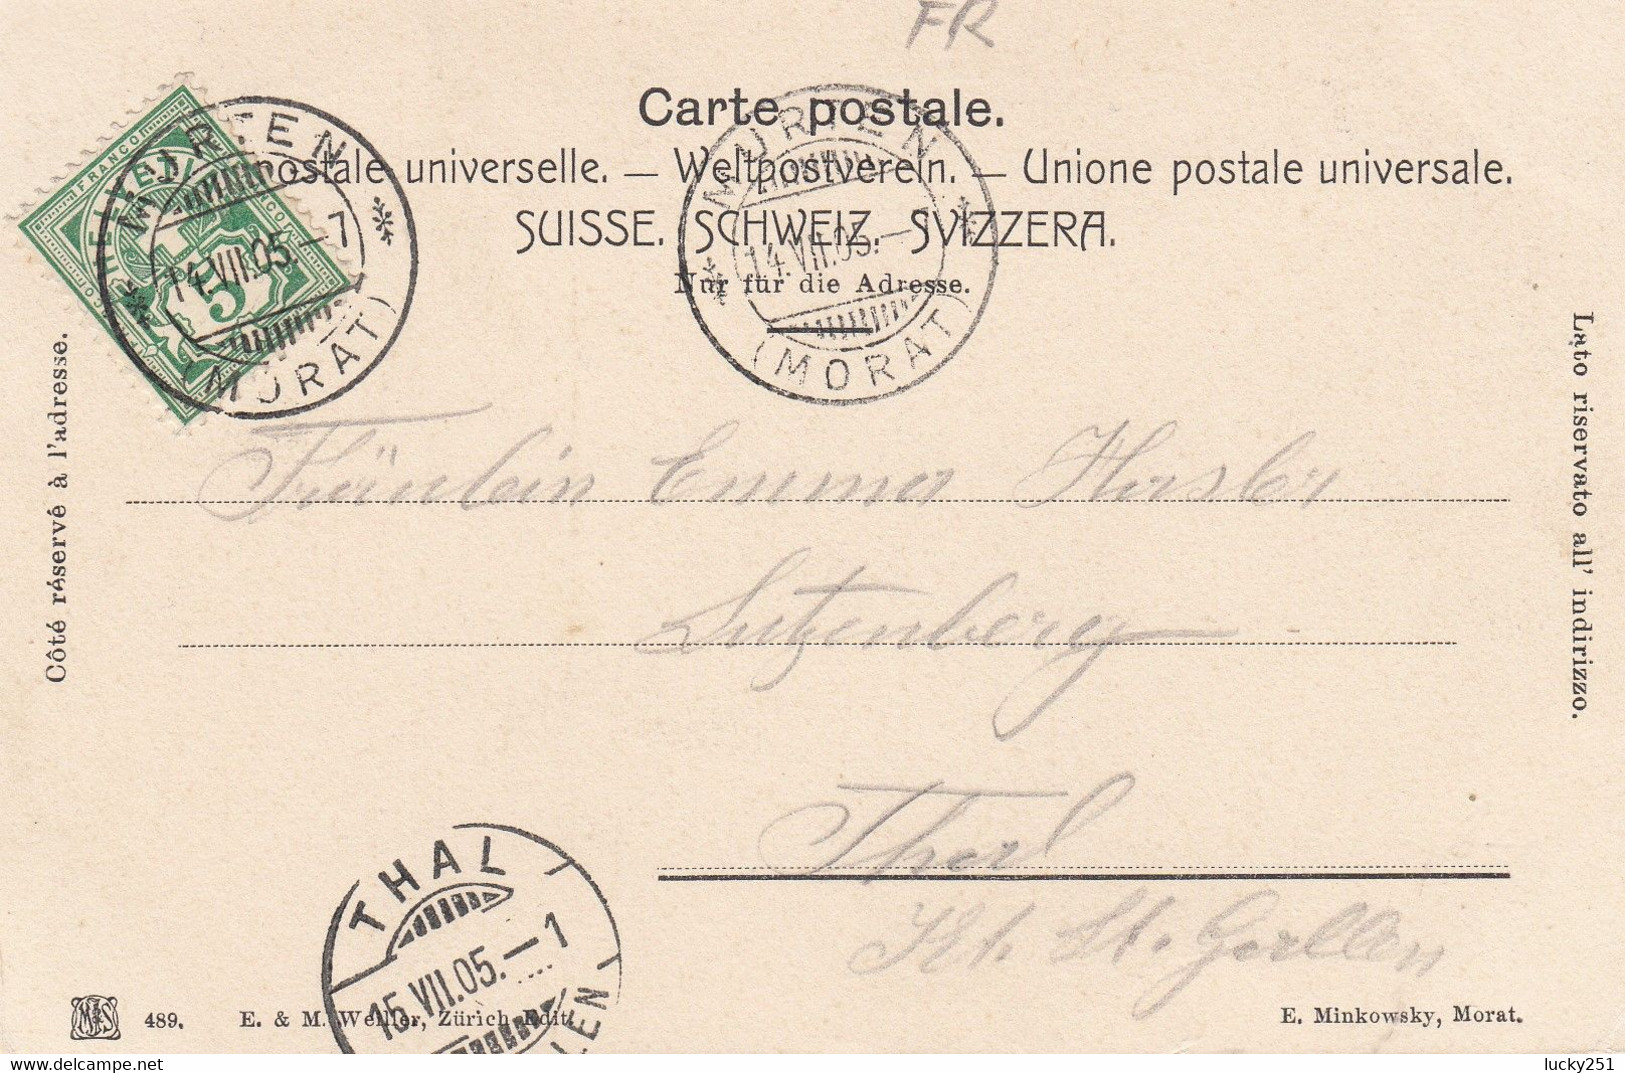 FR
Carte postale.
postale universelle. — Weltpostverein. — Unione postale universale.
SUISSE. SCHWEIZ. SVIZZERA.
Nur für die Adresse.
FRANCO
5
MURTEN
14.VII.05.–7
(MORAT)
MURTEN
14.VII.05.–7
(MORAT)
Côté réservé à l'adresse.
Lato riservato all' indirizzo.
Fräulein Emma Hasler
Lutzenberg
Thal
Kt. St. Gallen
THAL
15.VII.05.–1
489. E. & M. Weiller, Zürich Edit.
E. Minkowsky, Morat.
lucky251